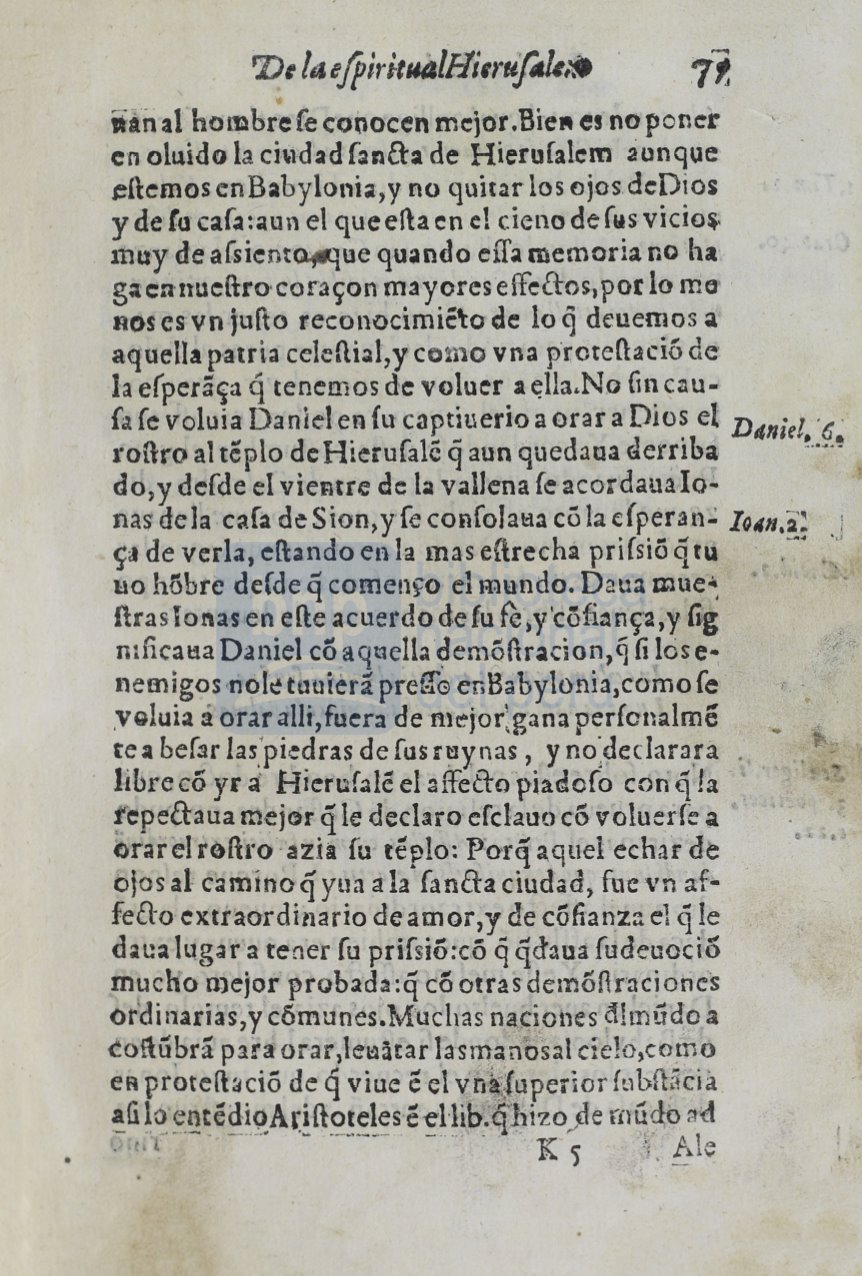 De la eſpiritual Hieruſalem
nan al hombre ſe conocen mejor. Bien es no poner
en oluido la ciudad ſancta de Hieruſalem aunque
eſtemos en Babylonia, y no quitar los ojos de Dios
y de ſu caſa: aun el que eſta en el cieno de ſus vicios
muy de aſsiento, que quando eſſa memoria no ha
ga en nueſtro coraçon mayores effectos, por lo me
nos es vn juſto reconocimiẽto de lo q̃ deuemos a
aquella patria celeſtial, y como vna proteſtació de
la eſperãça q̃ tenemos de voluer a ella. No ſin cau-
ſa ſe voluia Daniel en ſu captiuerio a orar a Dios el
Daniel. 6.
roſtro al tẽplo de Hieruſalẽ q̃ aun quedaua derriba
do, y deſde el vientre de la vallena ſe acordaua Io-
nas de la caſa de Sion, y ſe conſolaua cõ la eſperan-
Ioan. 2.
ça de verla, eſtando en la mas eſtrecha priſsiõ q̃ tu
uo hõbre deſde q̃ començo el mundo. Daua mue-
ſtras Ionas en eſte acuerdo de ſu fè, y cõfiança, y ſig
nificaua Daniel cõ aquella demõſtracion, q̃ ſi los e-
nemigos no le tuuierã preſſo en Babylonia, como ſe
voluia a orar alli, fuera de mejor gana perſonalmẽ
te a beſar las piedras de ſus ruynas, y no declarara
libre cõ yr a Hieruſalẽ el affecto piadoſo con q̃ la
repectaua mejor q̃ le declaro eſclauo cõ voluerſe a
orar el roſtro azia ſu tẽplo: Porq̃ aquel echar de
ojos al camino q̃ yua a la ſancta ciudad, fue vn af-
fecto extraordinario de amor, y de cõfianza el q̃ le
daua lugar a tener ſu priſsiõ: cõ q̃ q̃daua ſu deuociõ
mucho mejor probada: q̃ cõ otras demõſtraciones
ordinarias, y cõmunes. Muchas naciones d̃l mũdo a
coſtũbrã para orar, leuãtar las manos al cielo, como
en proteſtaciõ de q̃ viue ẽ el vna ſuperior ſubſtãcia
aſi lo entẽdio Ariſtoteles ẽ el lib. q̃ hizo de mũdo ad
K 5 Ale